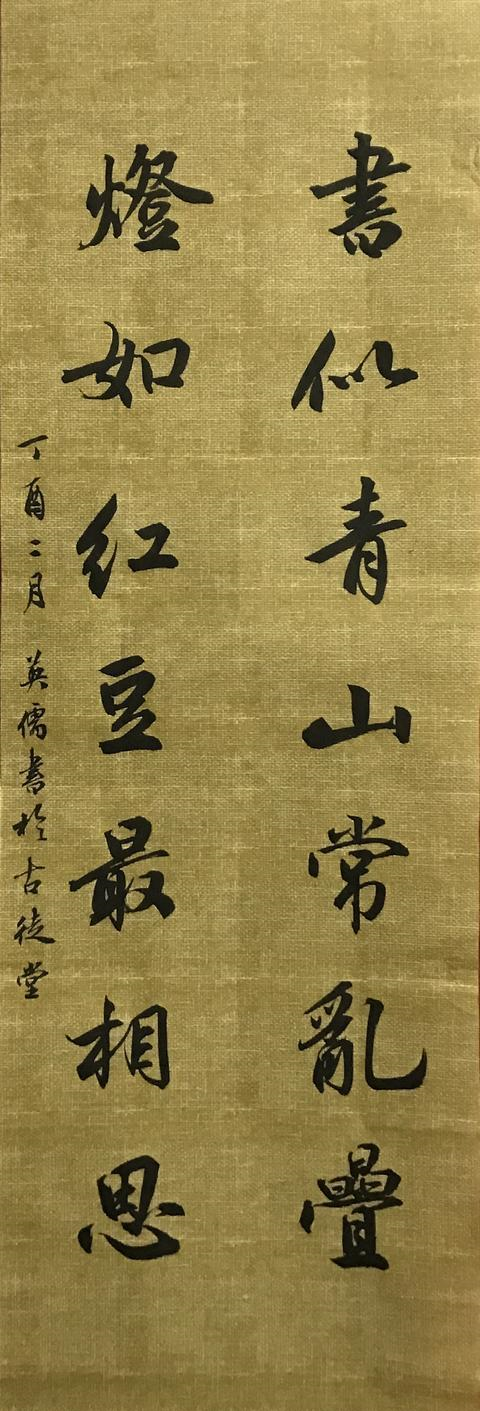 書似青山常亂疊
燈如红豆最相思
丁酉二月 英儒書於古徒堂